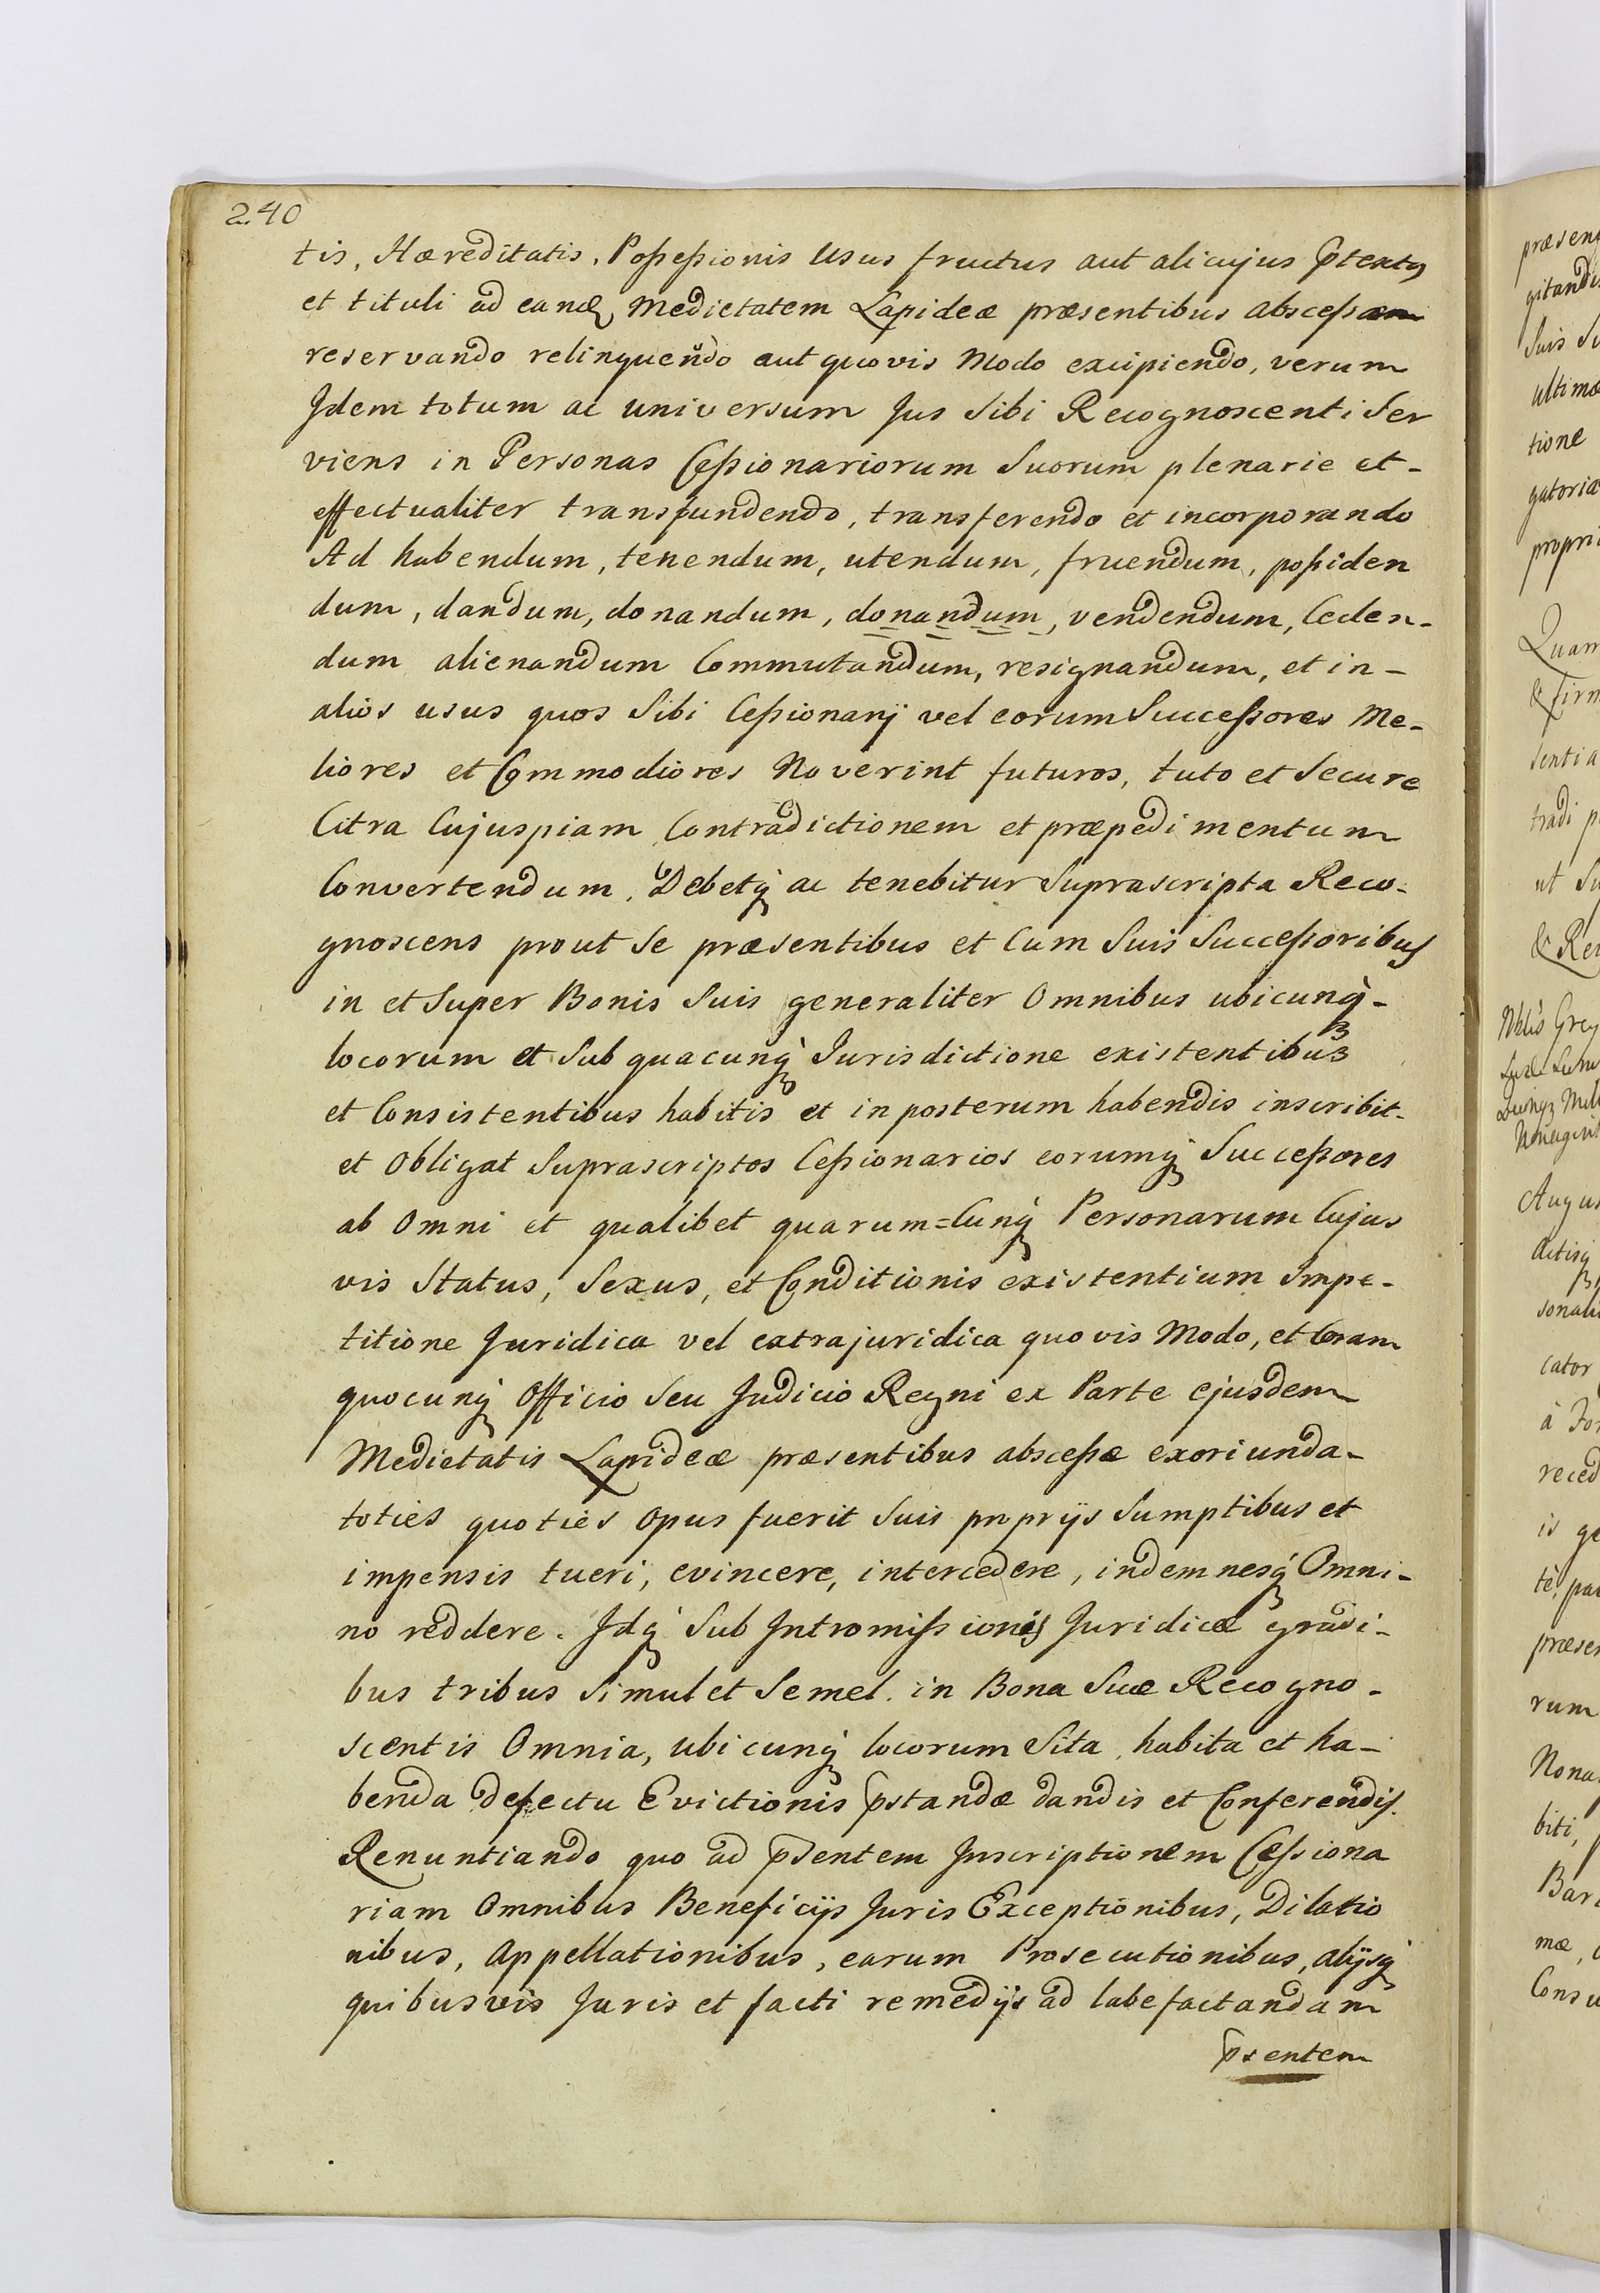 240
tis, Hæreditatis, Poßeßionis Usus fructus aut alicujus ꝑtextꝰ
et tituli ad eandē Medietatem Lapideæ præsentibus absceßam
reservando relinquendo aut quovis Modo excipiendo, verum
Jdem totum ac universum Jus Sibi Recognoscenti Ser
viens in Personas Ceßionariorum Suorum plenarie et-
effectualiter transfundendo, transferendo et incorporando
Ad habendum, tenendum, utendum, fruendum, poßiden
dum, dandum, donandum, donandum, vendendum, Ceden-
dum alienandum Commutandum, resignandum, et in-
alios usus quos Sibi Ceßionarij vel eorum Succeßores Me-
liores et Commodiores Noverint futuros, tuto et Secure
Citra Cujuspiam Contradictionem et præpedimentum
Convertendum. Debetq̃ ac tenebitur Suprascripta Reco-
gnoscens prout Se præsentibus et Cum Suis Succeßoribus
in et Super Bonis Suis generaliter Omnibus ubicunq̃-
locorum et Sub quacunq̃ Jurisdictione existentibus
et Consistentibus habitis et in posterum habendis inscribit-
et Obligat Suprascriptos Ceßionarios eorumq̃ Succeßores
ab Omni et qualibet quarum=Cunq̃ Personarum Cujus
vis Status, Sexus, et Conditionis existentium Impe-
titione Juridica vel extrajuridica quovis Modo, et Coram
quocunq̃ Officio Seu Judicio Regni ex Parte ejusdem
Medietatis Lapideæ præsentibus absceßæ exoriunda-
toties quoties Opus fuerit Suis proprijs Sumptibus et
impensis tueri, evincere, intercedere, indemnesq̃ Omni-
no reddere. Jdq̃ Sub Intromißionis Juridicæ gradi-
bus tribus Simul et Semel. in Bona Suæ Recogno-
scentis Omnia, ubicunq̃ locorum Sita, habita et ha-
benda defectu Evictionis p̃standæ dandis et Conferendis.
Renuntiando quo ad p̃sentem Inscriptionem Ceßiona
riam Omnibus Beneficijs Juris Exceptionibus, Dilatio
nibus, Appellationibus, earum Prosecutionibus, alijsq̃
quibusvis Juris et facti remedijs ad labefactandam
p̃sentem
præsen
gitandi
Suis Su
ultimæ
tione
gatoriæ
propri
Quam
& firm
senti a
tradi p
ut Su
& Re
Augus
sonali
cator
à For
reced
is ge
tè, pa
præsen
rum
Nona
biti,
Bar
mæ,
Consu